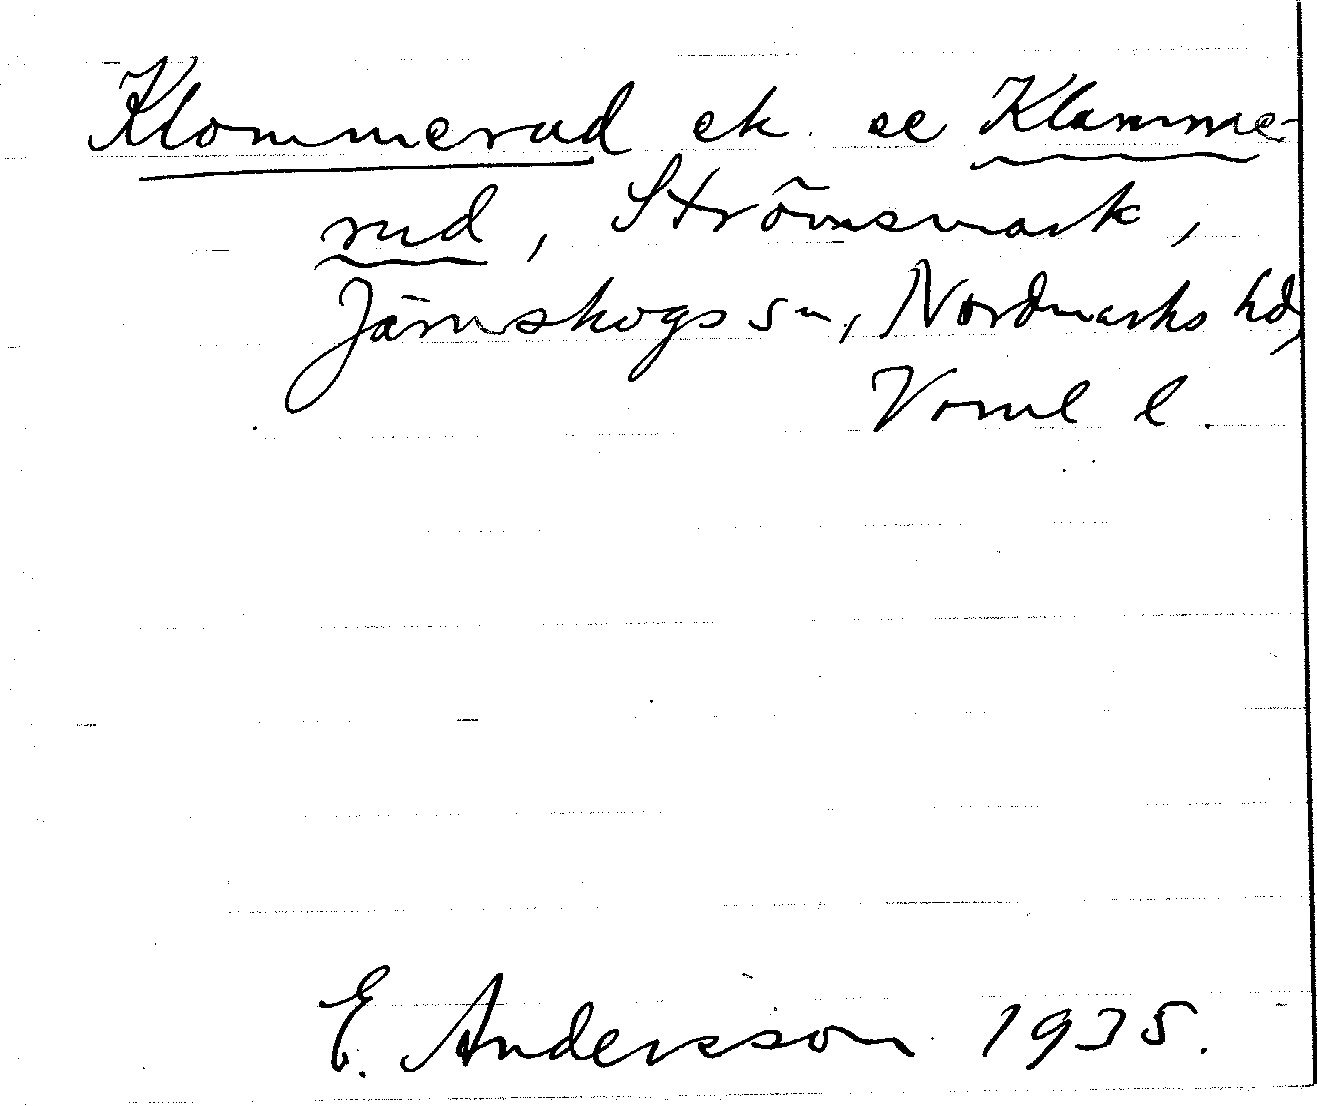 Klommerud ek. se Klamme-
rud, Strömsmark,
Järnskogs sn, Nordmarks hd,
Vrml l.
E. Andersson 1935.